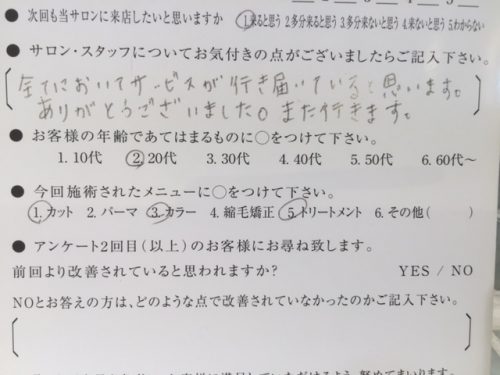 ● 次回も当サロンに来店したいと思いますか 1.来ると思う 2.多分来ると思う 3.多分来ないと思う 4.来ないと思う 5.わからない
● サロン・スタッフについてお気付きの点がございましたらご記入下さい。
全てにおいてサービスが行き届いていると思います。
ありがとうございました。また行きます。
● お客様の年齢であてはまるものに○をつけて下さい。
1. 10代 2. 20代 3. 30代 4. 40代 5. 50代 6. 60代～
● 今回施術されたメニューに○をつけて下さい。
1. カット 2. パーマ 3. カラー 4. 縮毛矯正 5. トリートメント 6. その他( )
● アンケート2回目(以上)のお客様にお尋ね致します。
前回より改善されていると思われますか? YES / NO
NOとお答えの方は、どのような点で改善されていなかったのかご記入下さい。